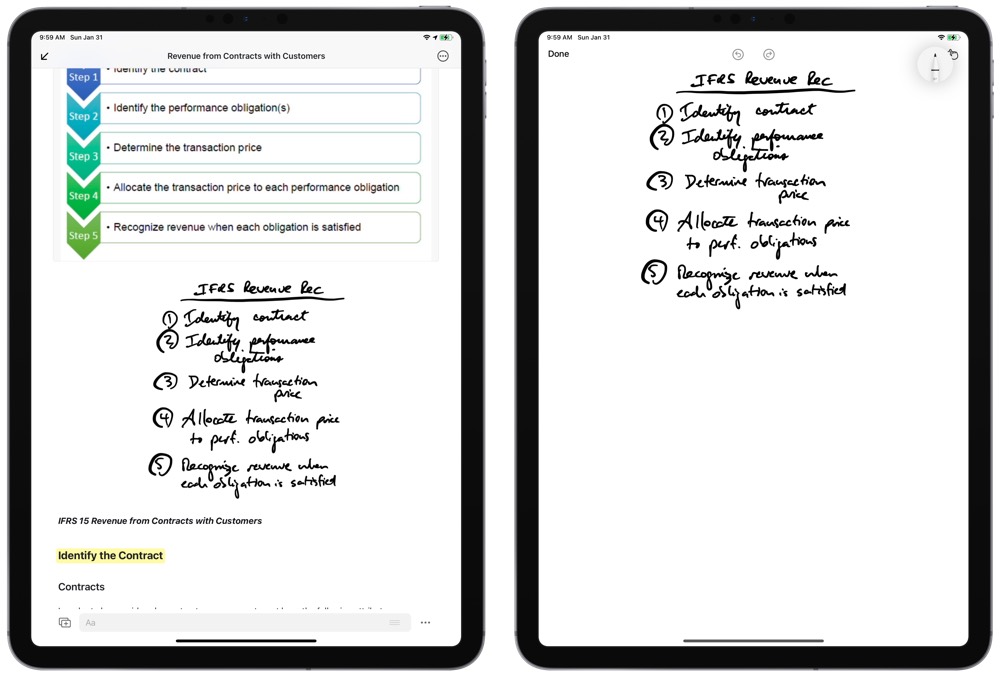 9:59 AM Sun Jan 31
Revenue from Contracts with Customers
Step 1
• Identify the contract
Step 2
• Identify the performance obligation(s)
Step 3
• Determine the transaction price
Step 4
• Allocate the transaction price to each performance obligation
Step 5
• Recognize revenue when each obligation is satisfied
IFRS Revenue Rec
① Identify contract
② Identify performance
obligations
③ Determine transaction
price
④ Allocate transaction price
to perf. obligations
⑤ Recognize revenue when
each obligation is satisfied
IFRS 15 Revenue from Contracts with Customers
Identify the Contract
Contracts
Aa
9:59 AM Sun Jan 31
Done
IFRS Revenue Rec
① Identify contract
② Identify performance
obligations
③ Determine transaction
price
④ Allocate transaction price
to perf. obligations
⑤ Recognize revenue when
each obligation is satisfied